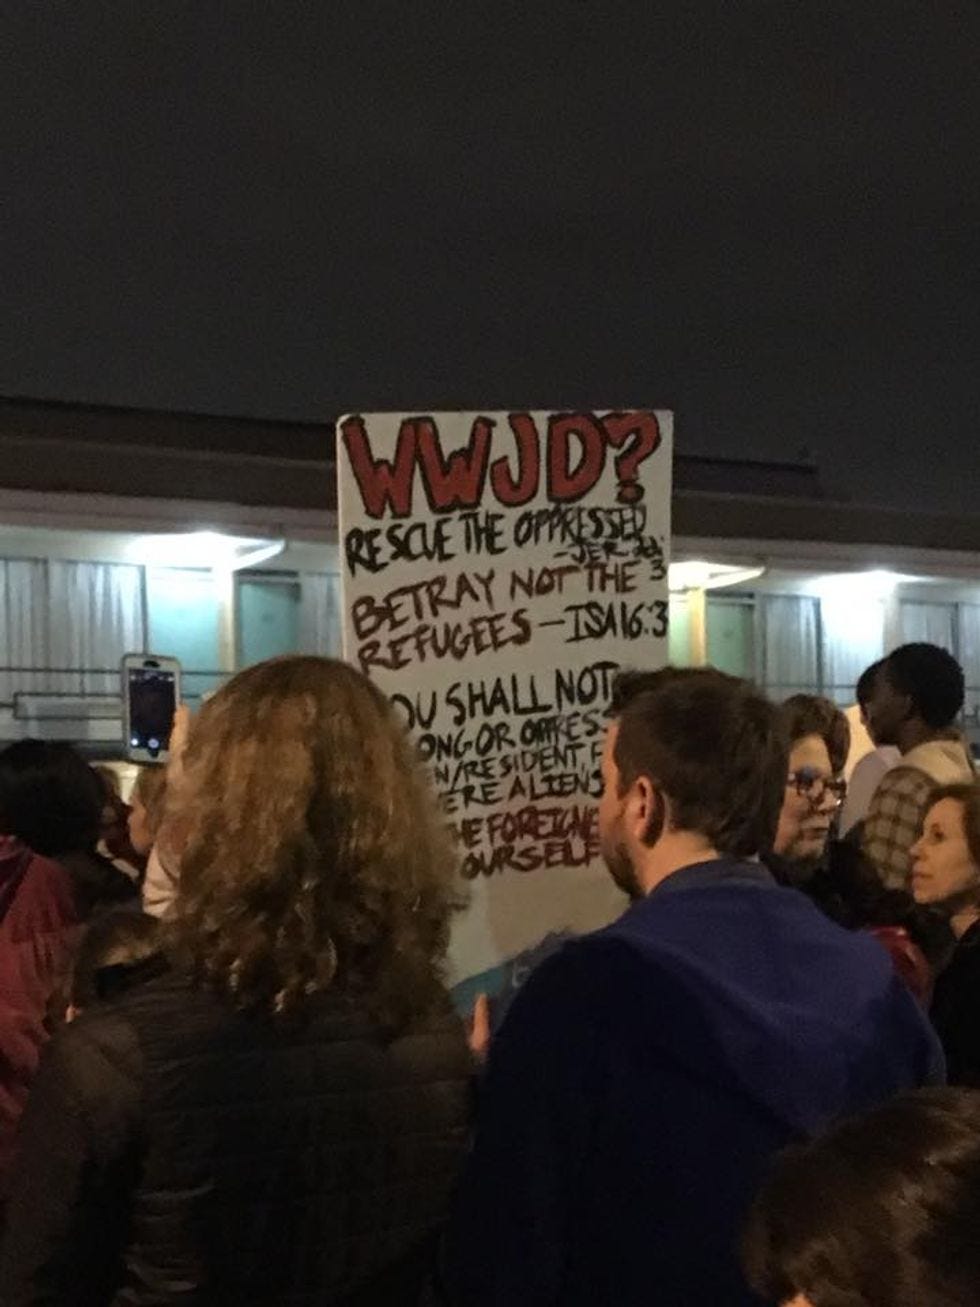 WWJD?
RESCUE THE OPPRESSED
-JER 22:
3
BETRAY NOT THE
REFUGEES - ISA 16:3
OU SHALL NOT
ONG OR OPPRESS
N/RESIDENT, F
ERE ALIENS
HE FOREIGNE
OURSELF